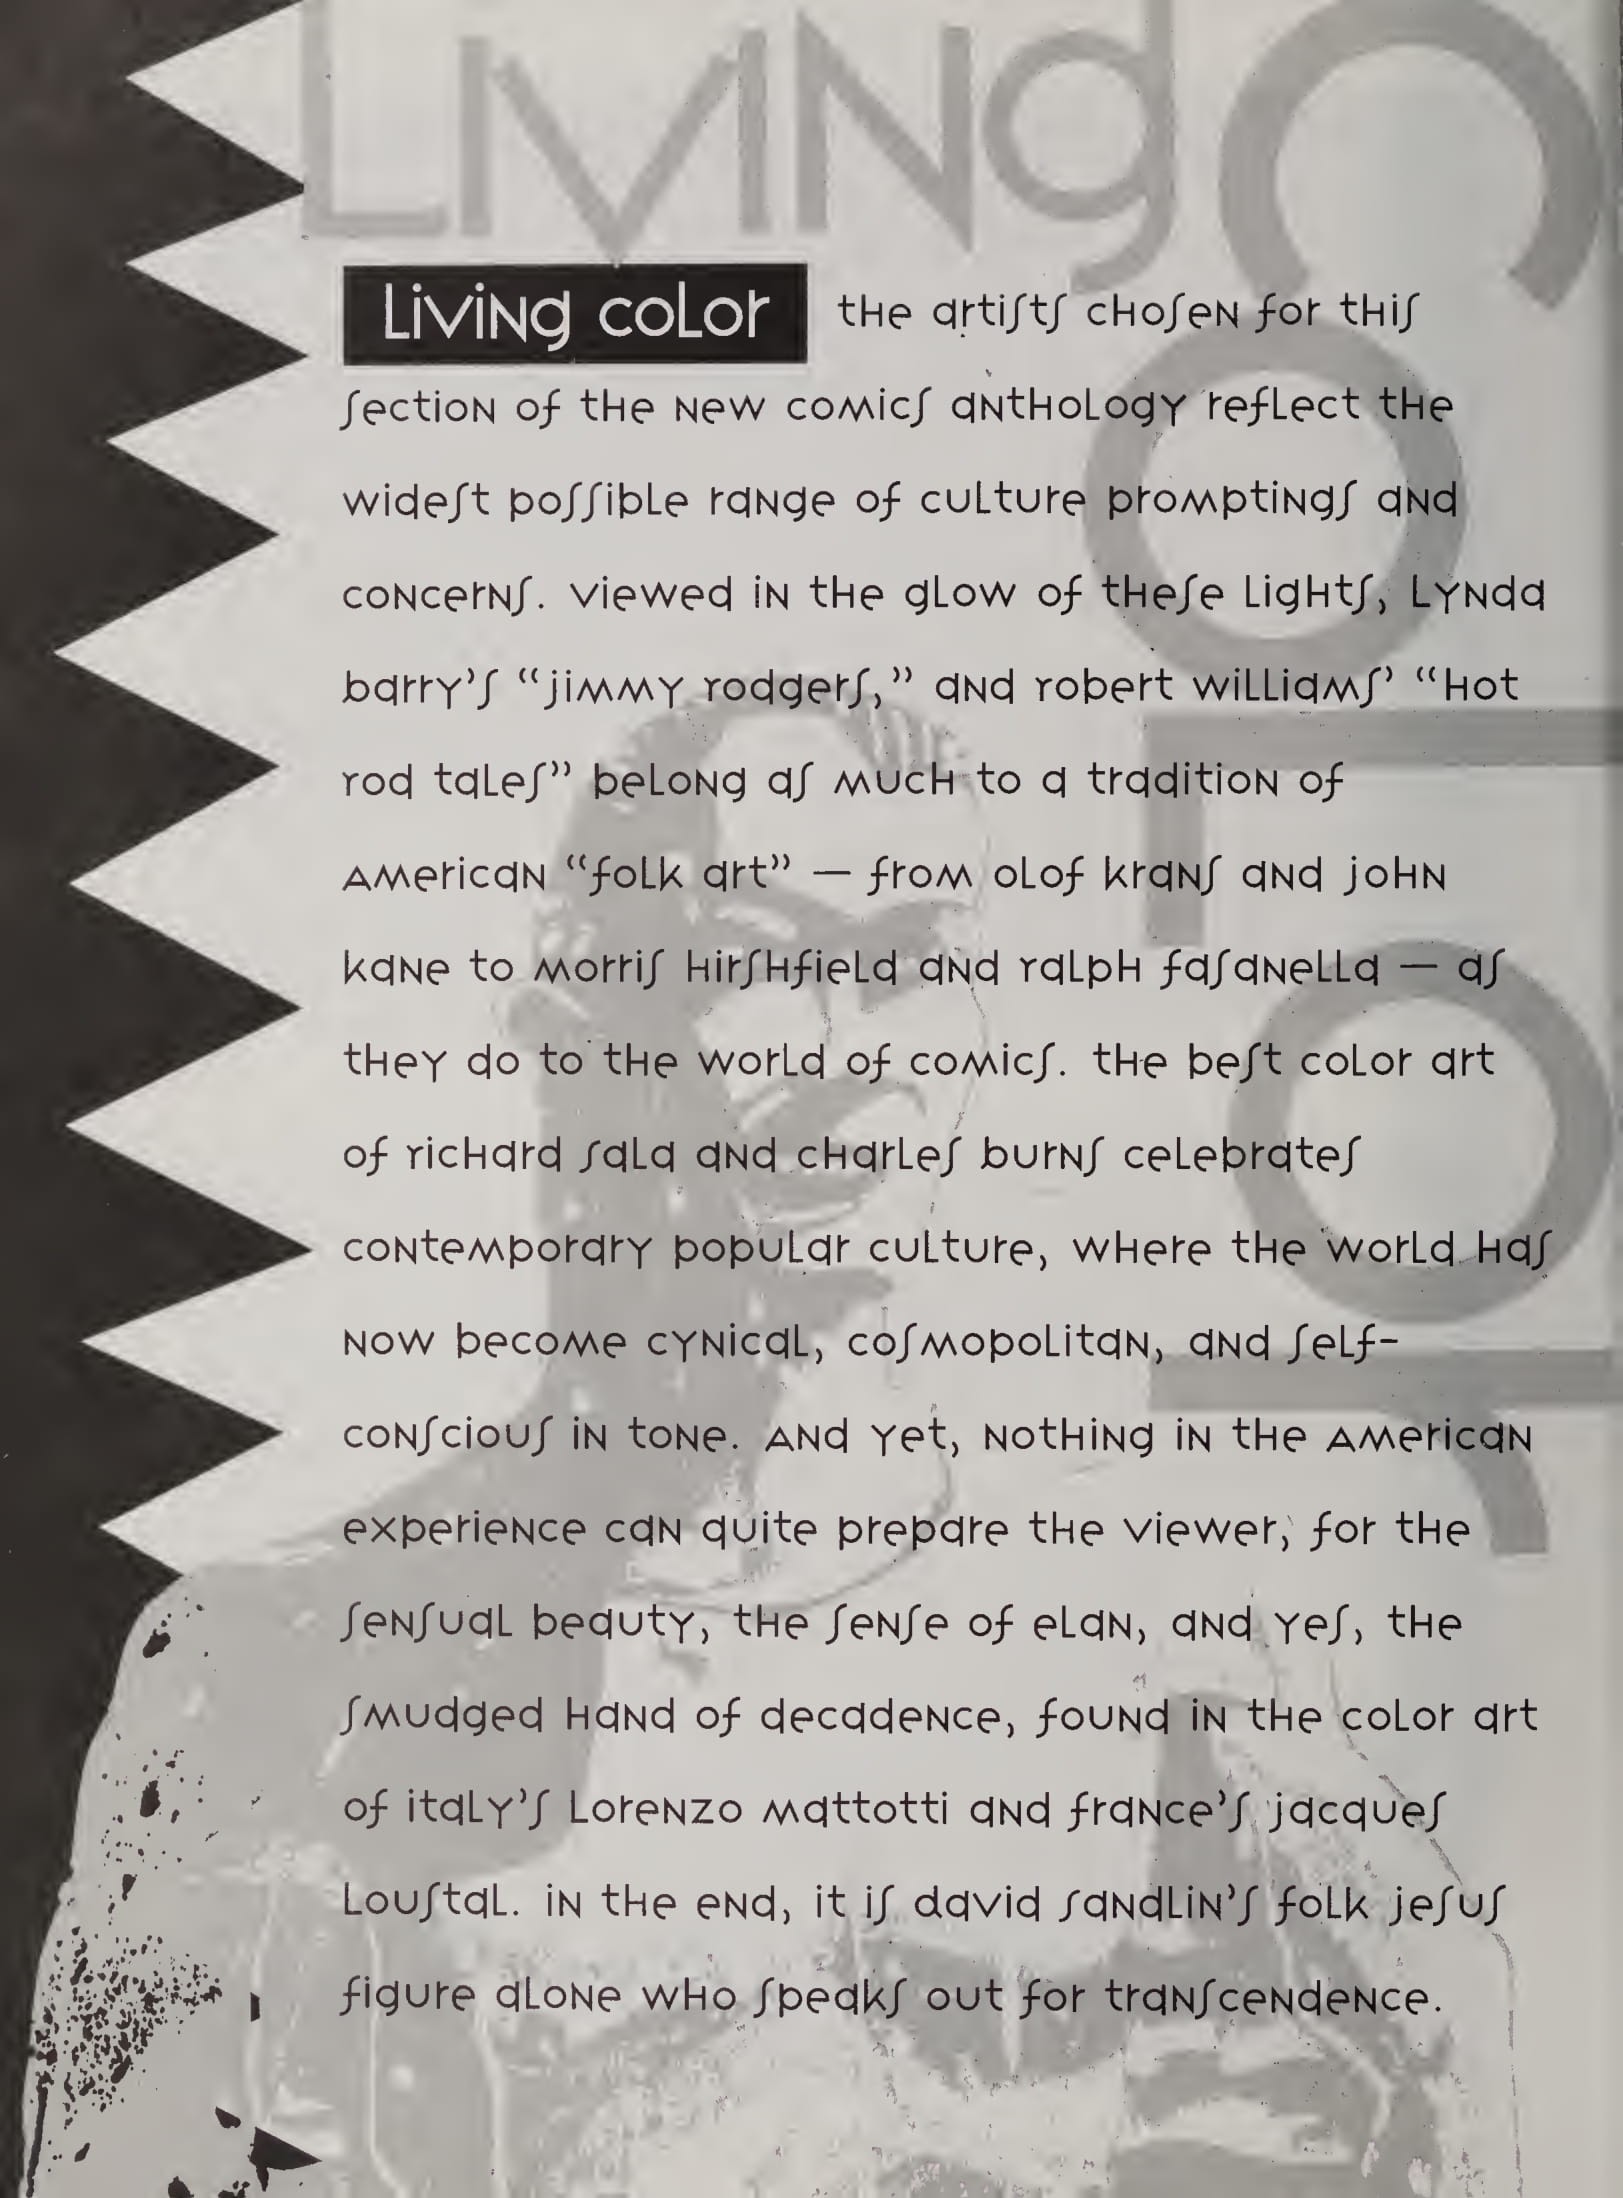 Living
COLOR
Living color the artists chosen for this
section of the new comics anthology reflect the
widest possible range of culture promptings and
concerns. viewed in the glow of these lights, lynda
barry's "jimmy rodgers," and robert williams' "hot
rod tales" belong as much to a tradition of
American "folk art" — from olof krans and john
kane to morris hirshfield and ralph fasanella — as
they do to the world of comics. the best color art
of richard sala and charles burns celebrates
contemporary popular culture, where the world has
now become cynical, cosmopolitan, and self-
conscious in tone. And yet, nothing in the American
experience can quite prepare the viewer, for the
sensual beauty, the sense of elan, and yes, the
smudged hand of decadence, found in the color art
of italy's lorenzo mattotti and france's jacques
loustal. in the end, it is david sandlin's folk jesus
figure alone who speaks out for transcendence.